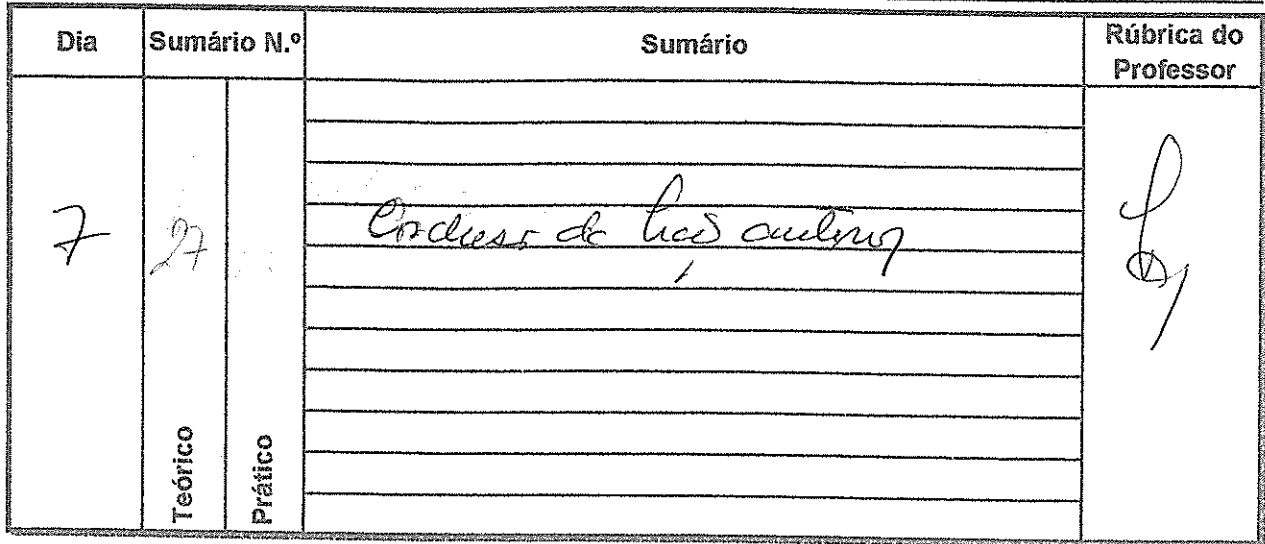 Dia Sumário N.º Sumário Rúbrica do Professor
7 27 Conclusão da lição anterior
Teórico
Prático